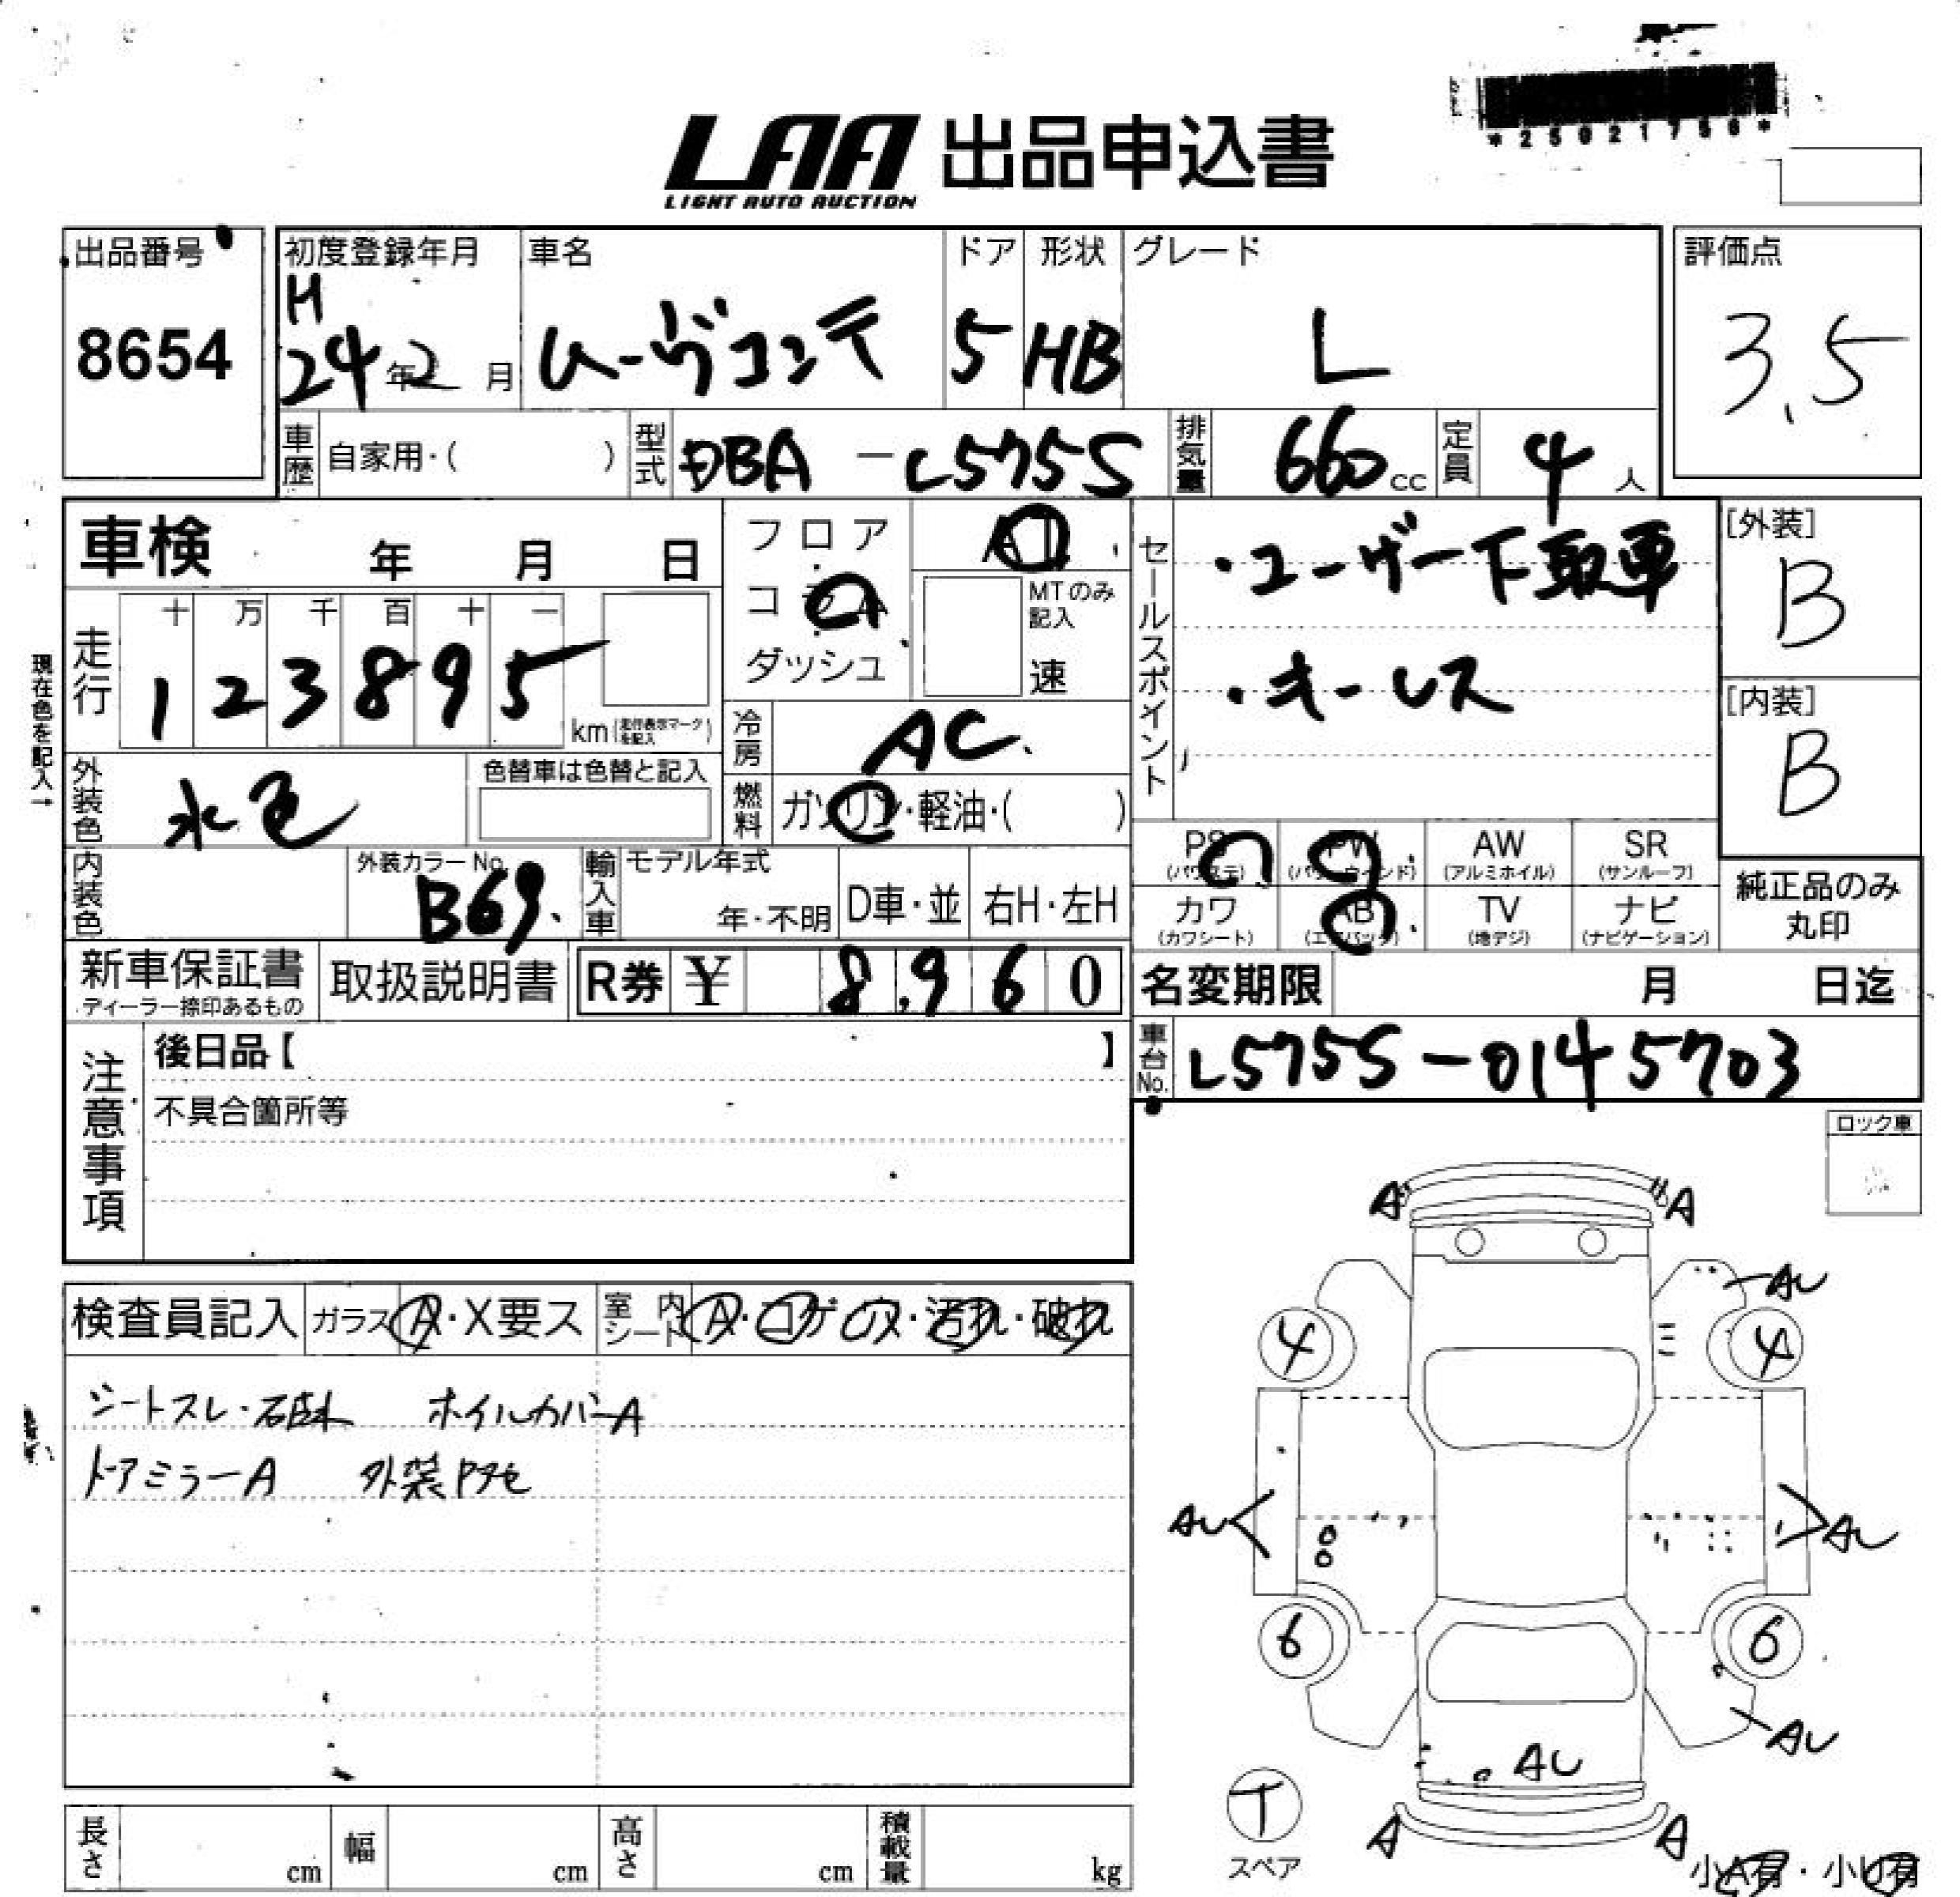 LAA 出品申込書
LIGHT AUTO AUCTION
*25021756*
出品番号
8654
初度登録年月
H
24年2月
車名
ムーヴコンテ
ドア
5
形状
HB
グレード
L
評価点
3.5
車歴 自家用・( )
型式 DBA-L575S
排気量 660cc
定員 4人
車検 年 月 日
走行 十 万 千 百 十 一
1 2 3 8 9 5
km(走行表示マークを記入)
現在色を記入→
外装色 水色
色替車は色替と記入
内装色
外装カラーNo. B69.
フロア
コラム
ダッシュ
AT
MTのみ記入
速
冷房 AC.
燃料 ガソリン・軽油・( )
輸入車 モデル年式
年・不明
D車・並
右H・左H
セールスポイント
・ユーザー下取車
・キーレス
[外装]
B
[内装]
B
PS(パワステ) PW(パワーウィンド) AW(アルミホイル) SR(サンルーフ)
カワ(カワシート) AB(エアバッグ) TV(地デジ) ナビ(ナビゲーション)
純正品のみ丸印
新車保証書
ディーラー捺印あるもの
取扱説明書
R券 ¥ 8,960
名変期限 月 日迄
車台No. L575S-0145703
注意事項
後日品【 】
不具合箇所等
ロック車
検査員記入 ガラス A・X要ス
室内シート A・コゲ穴・汚れ・破れ
シートスレ・
ホイルカバーA
ドアミラーA
A A
AU
4 4
AU AU
6 6
AU
AU
A A
T
スペア
小A有・小U有
長さ cm 幅 cm 高さ cm 積載量 kg